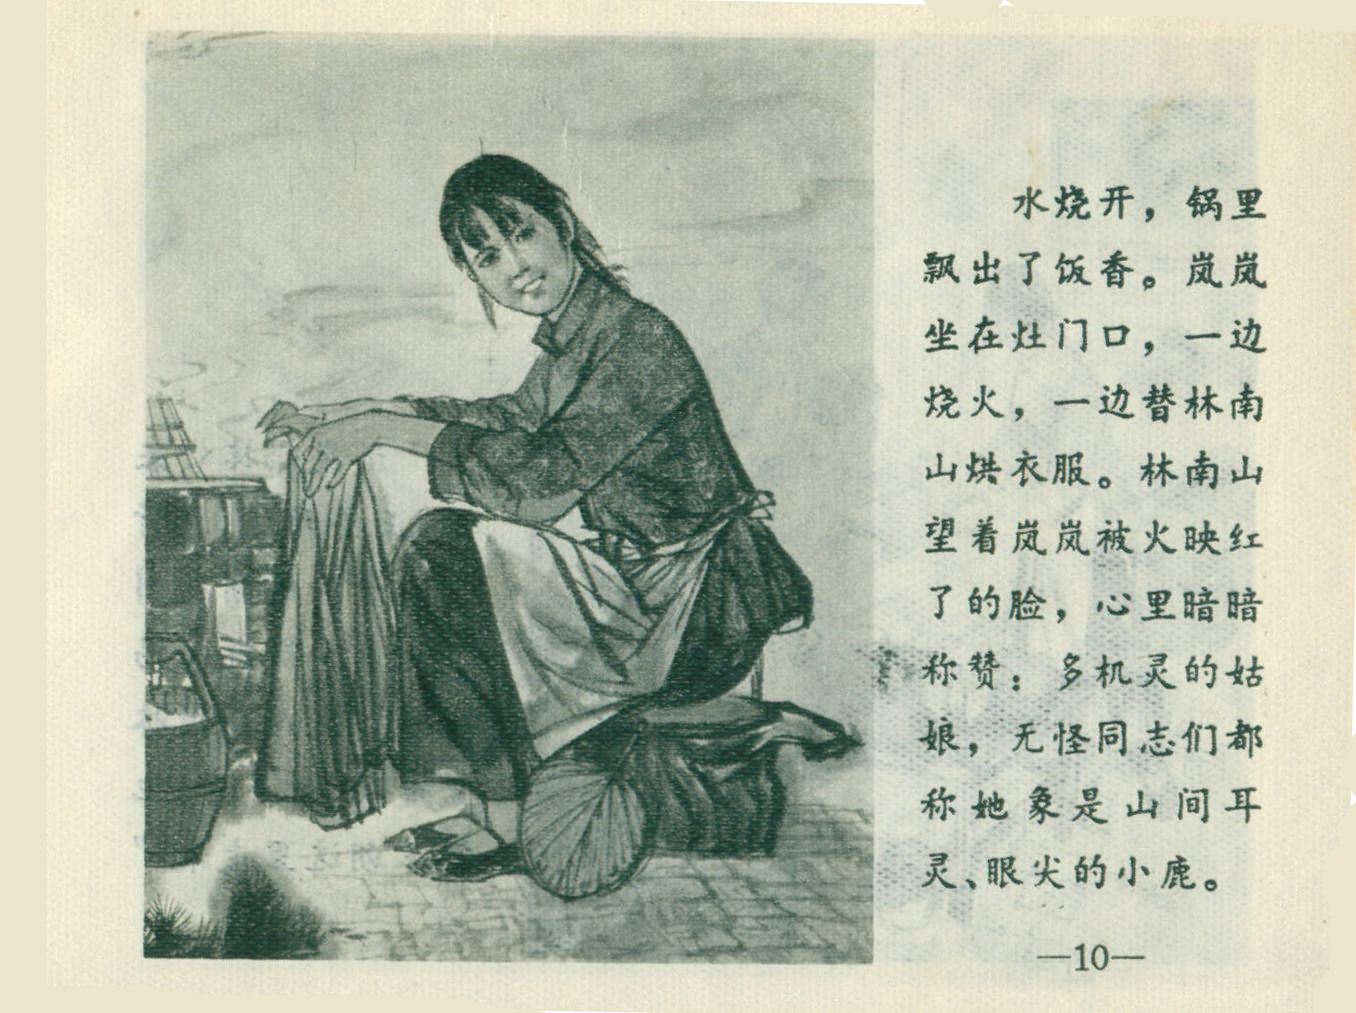 水烧开，锅里
飘出了饭香。岚岚
坐在灶门口，一边
烧火，一边替林南
山烘衣服。林南山
望着岚岚被火映红
了的脸，心里暗暗
称赞：多机灵的姑
娘，无怪同志们都
称她象是山间耳
灵、眼尖的小鹿。
—10—